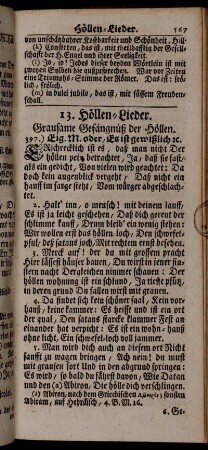 Höllen-Lieder. 567
von unschätzbahrer Kostbarkeit und Schönheit, Hüll-
(k) Consorten, das ist, mit theilhafftig der Gesell-
schafft der H. Engel und ihrer Seeligkeit.
(l) Jo, io! Jedes dieser beyden Wörtlein ist mit
zweyen Sylben die auszusprechen. War vor Zeiten
eine Triumphs-Stimme der Römer. Das ist: frö-
lich, frölich.
(m) in dulci jubilo, das ist, mit süssem Freuden-
schall.
13. Höllen-Lieder.
Grausame Gefängnüß der Höllen.
397.) Eig. M. oder, Es ist gewißlich ꝛc.
Erschrecklich ist es, daß man nicht Der
höllen pein betrachtet, Ja, daß sie fast
als ein gedicht, Von vielen wird geachtet: Da
doch kein augenblick vergeht, Daß nicht ein
hauff im sarge steht, Vom würger abgeschlach-
tet.
2. Halt' inn, o mensch, mit deinem lauff,
Es ist ja leicht geschehen, Daß dich gereut der
schlimme kauff, Drum bleib' ein wenig stehen:
Wir wollen erst das höllen-loch, Den schwefel-
pful, deß satans joch, Mit rechtem ernst besehen.
3. Merck auf! der du mit grossen pracht
Hier lässest häuser bauen, Du wirst in jener fin-
stern nacht Dergleichen nimmer schauen: Der
höllen wohnung ist ein schlund, Ja tieffe pfütz,
in deren grund Du fallen wirst mit grauen.
4. Da findet sich kein schöner saal, Kein vor-
hauß, keine kammer: Es heist und ist ein ort
der qual, Den satans starcke klammer Fest an
einander hat verpicht: Es ist ein wohn-hauß
ohne licht, Ein schwefel-loch voll jammer.
5. Man wird dich auch an diesem ort Nicht
sanfft zu wagen bringen, Ach nein! du must
mit grausen fort Und in den abgrund springen:
Es wird, so bald du fährst davon, Wie Datan
und den (a) Abiron, Die hölle dich verschlingen.
(a) Abiron, nach dem Griechischen, sonsten
Abiram, auf Hebräisch, 4. B. M. 16.
6. Ge-